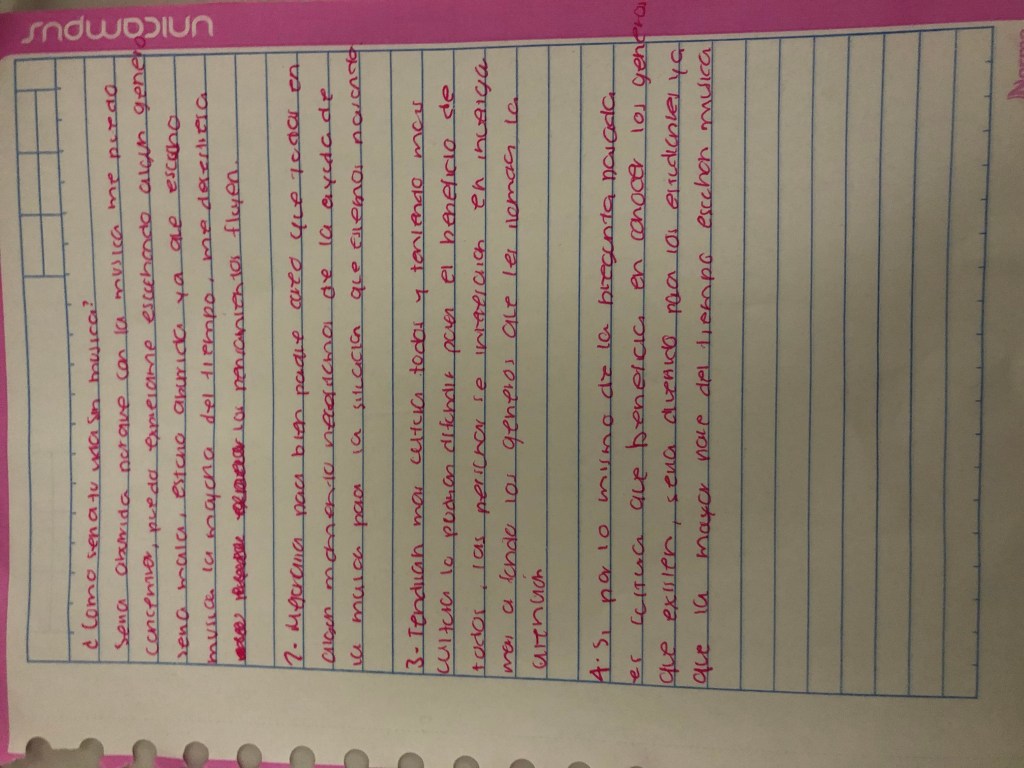 unicampus
Norma
¿Como seria tu vida sin musica?
Seria aburrida porque con la musica me puedo
concentrar, puedo expresarme escuchando algun genero
seria mala, estaria aburrida ya que escucho
musica la mayoria del tiempo, me desestresa
las pensamientos fluyen.
2- Mejoraria mas bien porque creo que
algun momento necesitaria de la ayuda de
la musica para la situacion que estemos pasando
3- Tendrian mas cultura todos y teniendo mas
cultura la podrian difundir para el beneficio de
todos, las personas se interesarian en investigar
mas a fondo los generos que les llaman la
atención
4. Si, por lo mismo de la pregunta pasada
es cultura que beneficia en conocer los generos
que existen, seria divertido para los estudiantes ya
que la mayor parte del tiempo escuchan musica